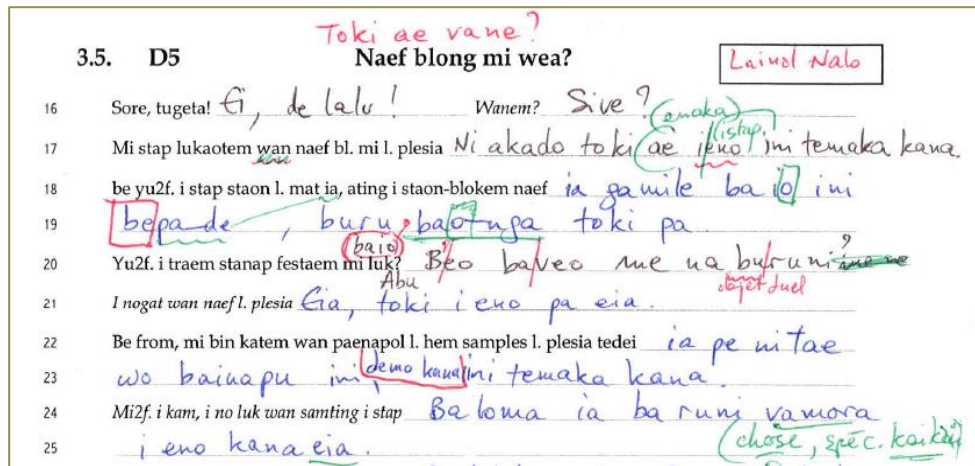 Toki ae vane?
3.5. D5 Naef blong mi wea? Lainol Nalo
16 Sore, tugeta! Ei, de lalu! Wanem? Sive?
(enaka)
(istap)
17 Mi stap lukaotem wan naef bl. mi l. plesia Ni akado toki (ae ieno ini temaka kana.
18 be yu2f. i stap staon l. mat ia, ating i staon-blokem naef ia gamile ba io ini
19 bepa de, buru baonga toki pa
(baio)
20 Yu2f. i traem stanap festaem mi luk? Beo baveo me na buruni?
Abu objet duel
21 I nogat wan naef l. plesia Eia, toki i eno pa eia.
22 Be from, mi bin katem wan paenapol l. hem samples l. plesia tedei ia pe ni tae
23 wo bainapu ini, demo kana ini temaka kana.
24 Mi2f. i kam, i no luk wan samting i stap Ba loma ia ba runi vamora
25 i eno kana eia. (chose, spéc. kaikai)